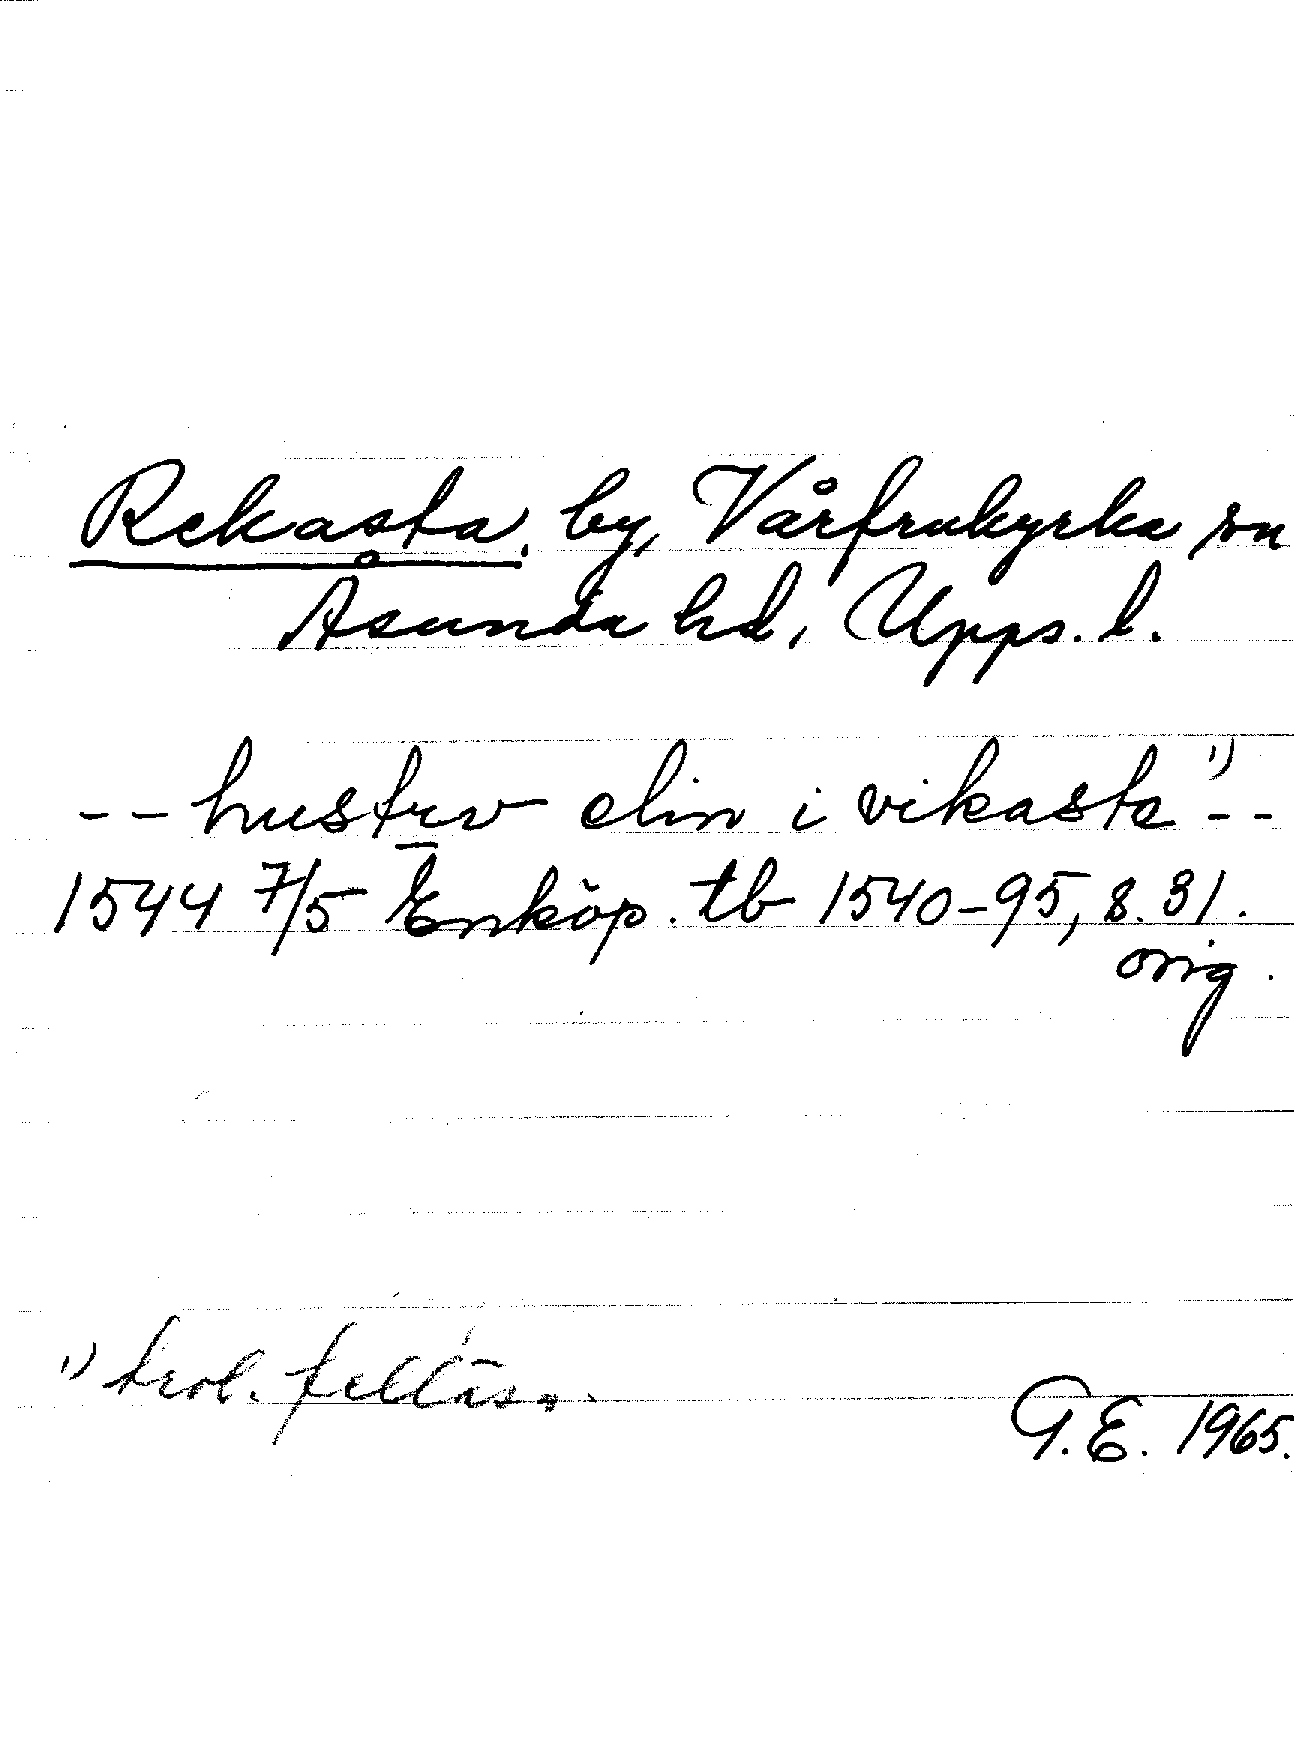 Rekasta, by, Vårfrukyrka sn
Åsunda hd, Upps. l.
-- hustrv elin i vikasta 1) --
1544 7/5 Enköp. tb 1540-95, s. 31.
orig.
1) trol. felläsn.
G.E. 1965.